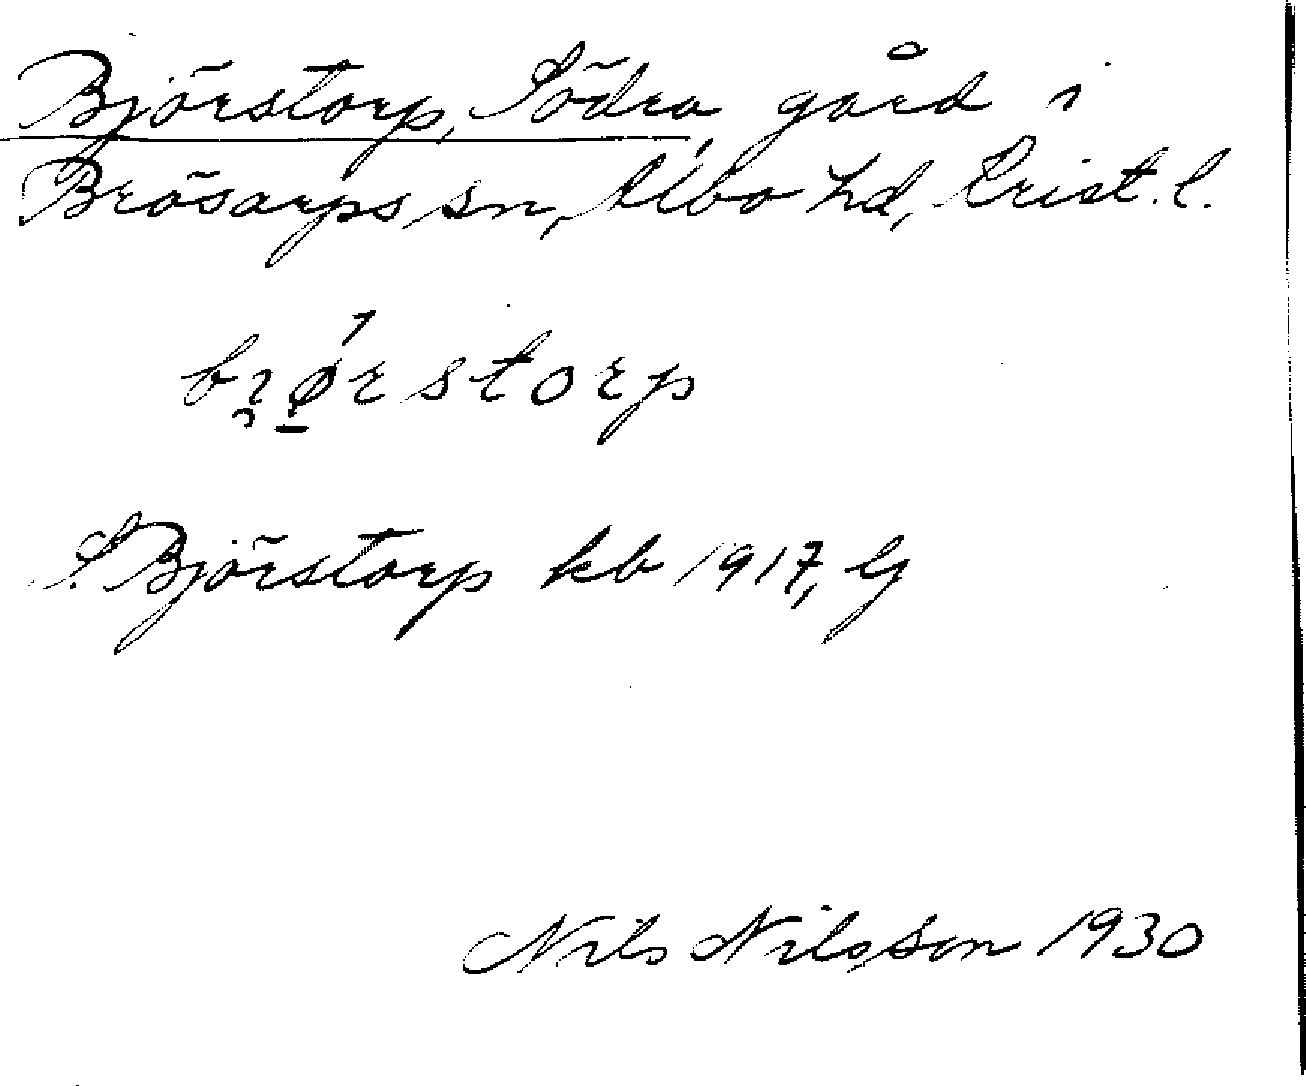 Björstorp, Södra, gård i
Brösarps sn, Albo hd, Krist. l.
bı̯ǿ̱rstorp
S. Björstorp kb 1917, G
Nils Nilsson 1930